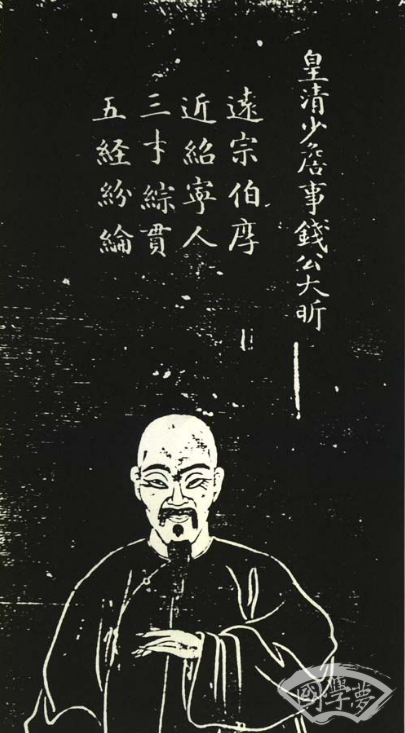 皇清少詹事錢公大昕
遠宗伯厚
近紹寧人
三才綜貫
五経紛綸
國學夢